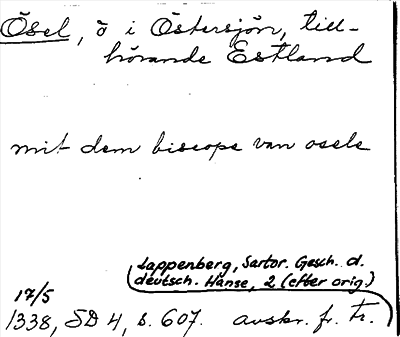 Ösel, ö i Östersjön, till-
hörande Estland
mit dem biscope van osele
Lappenberg, Sartor. Gesch. d.
deutsch. Hanse, 2 (efter orig.)
17/5
1338, SD 4, s. 607. avskr. fr. tr.